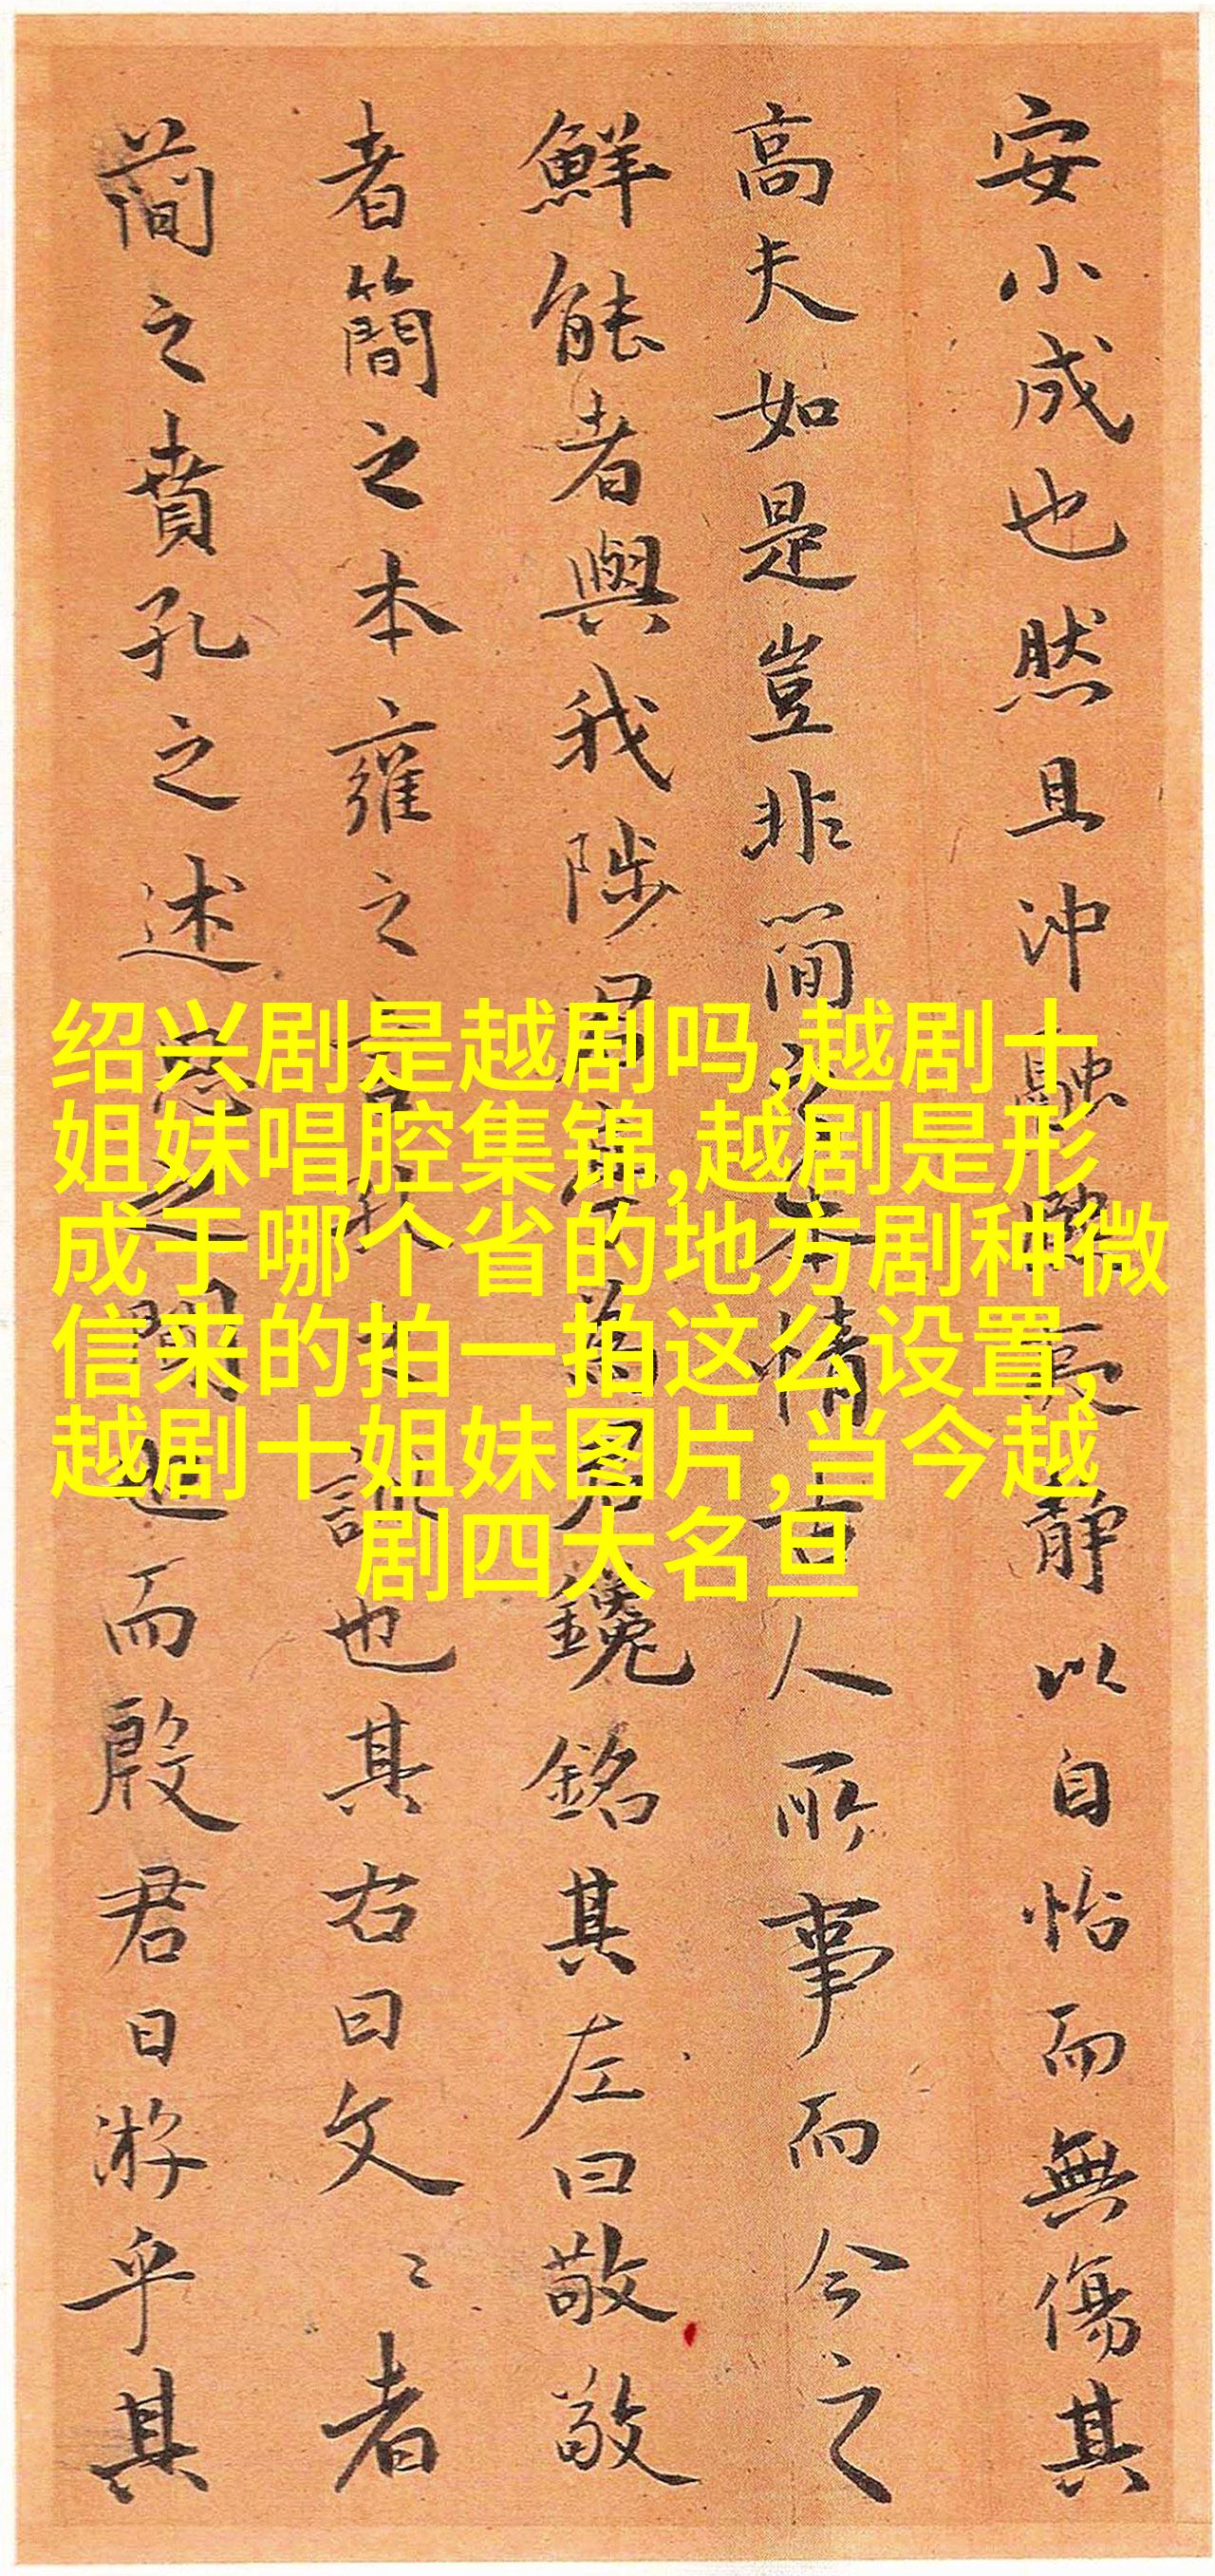 安小成也然且沖融靜以自怡而無傷其
高夫如是豈非簡之本情古人所事而今之
鮮能者與我陟君銘其左曰敬敬
者簡之本雍之言也其右曰文〻者
簡之賁孔之述思之閒也而殷君日游乎其
绍兴剧是越剧吗,越剧十
姐妹唱腔集锦,越剧是形
成于哪个省的地方剧种微
信来的拍一拍这么设置,
越剧十姐妹图片,当今越
剧四大名旦